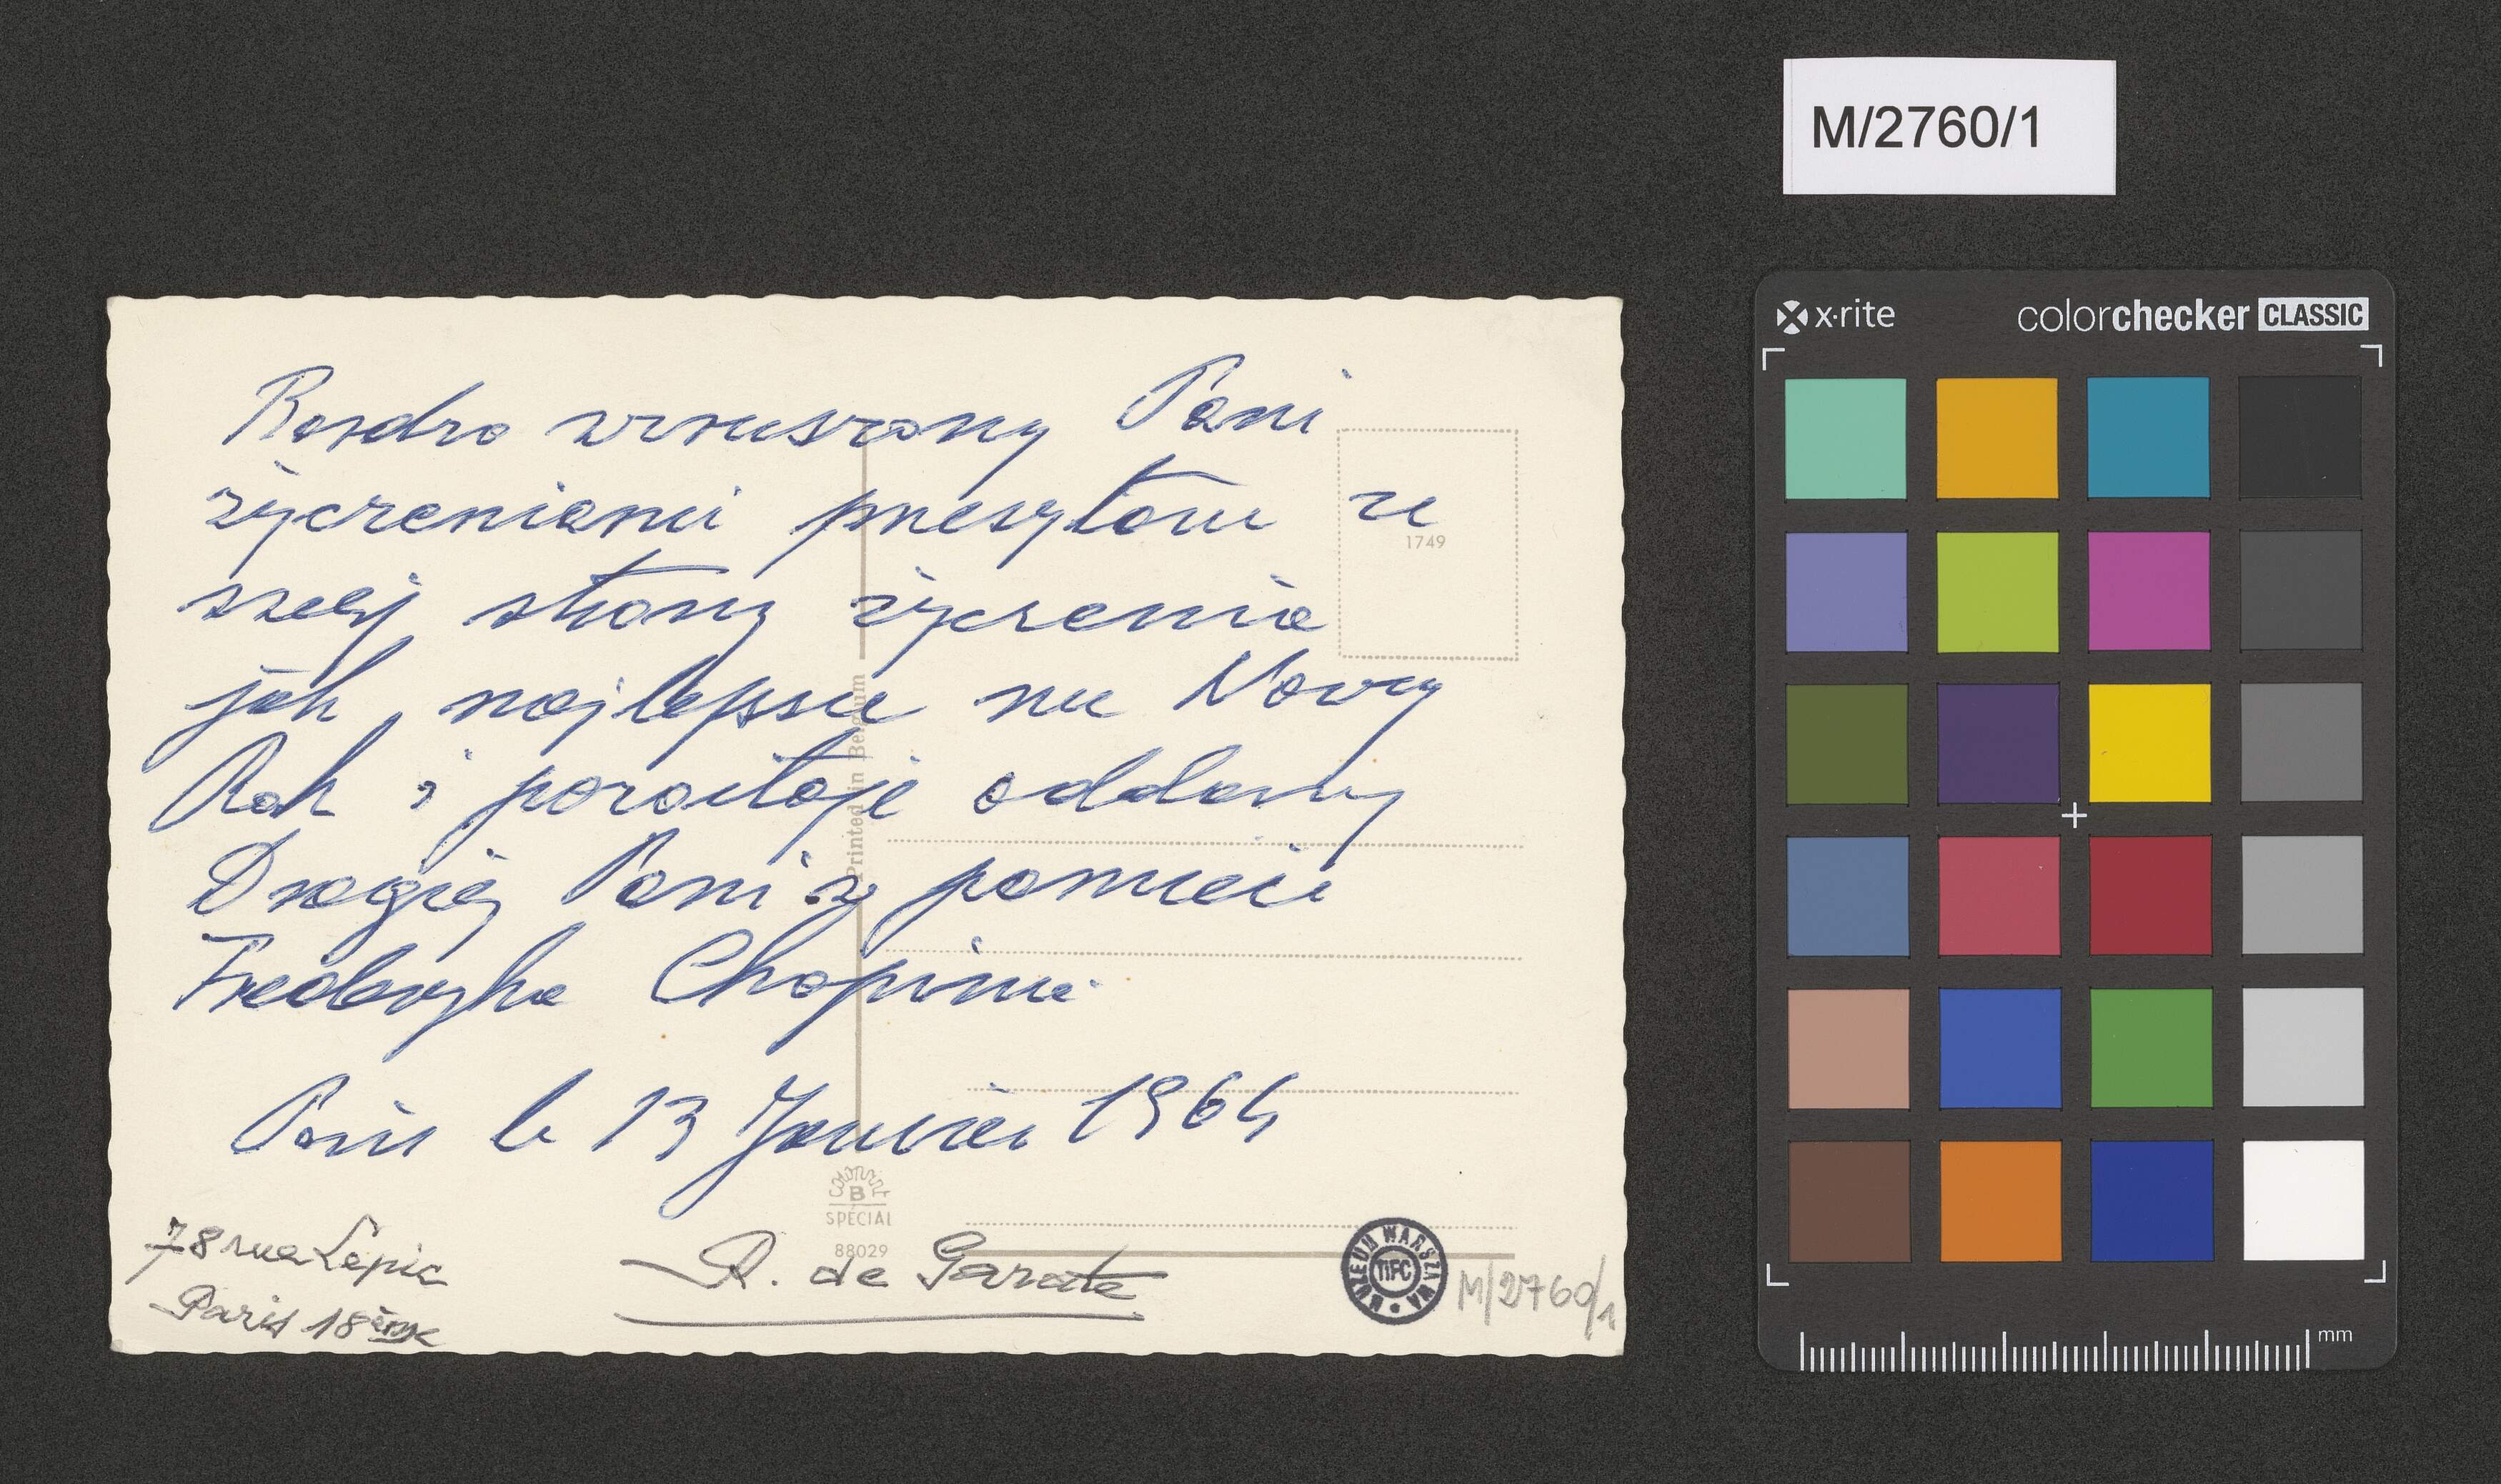 M/2760/1
x·rite
colorchecker CLASSIC
Bardzo wzruszony Pani
życzeniami przesyłam ze
szej strony życzenia
jak najlepsze na Nowy
Rok i pozostaję oddany
Drogiej Pani w pamięci
Fryderyka Chopina.
Paris le 13 Janvier 1964
1749
Printed in Belgium
COLORPRINT
B
SPECIAL
88029
78 rue Lepic
Paris 18ème
R. de Garate
MUZEUM WARSZAWA
TiFC
M/2760/1
mm